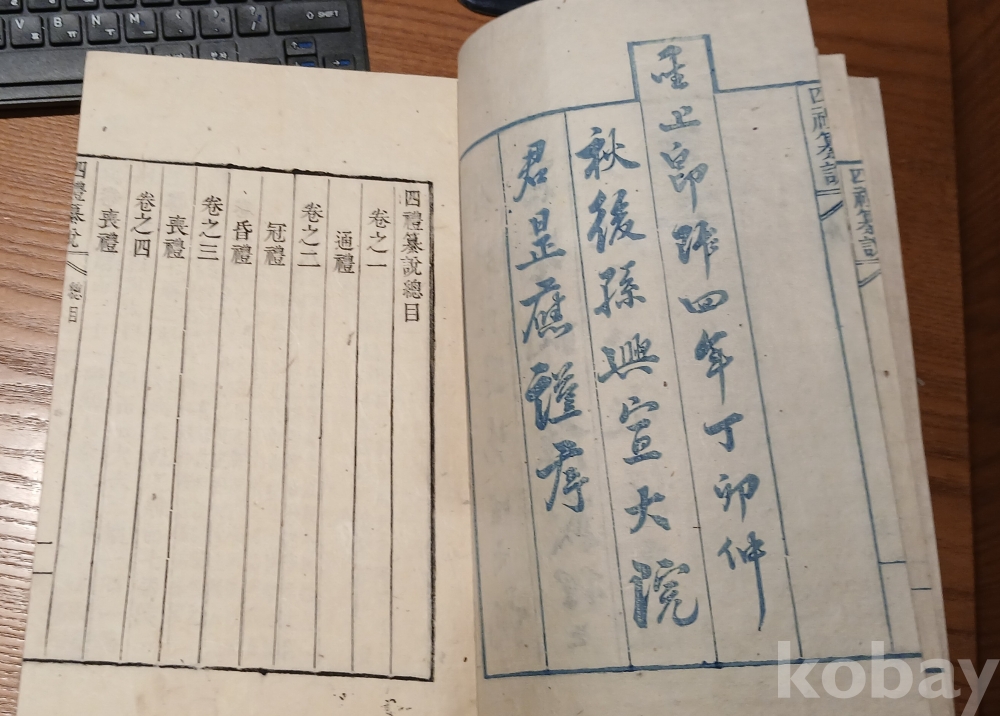 四禮纂說
聖上卽阼四年丁卯仲
秋後孫興宣大院
君昰應謹序
四禮纂說總目
卷之一
通禮
卷之二
冠禮
昏禮
卷之三
喪禮
卷之四
喪禮
四禮纂說
總目
四禮纂說
SHIFT
V
B
N
M
kobay